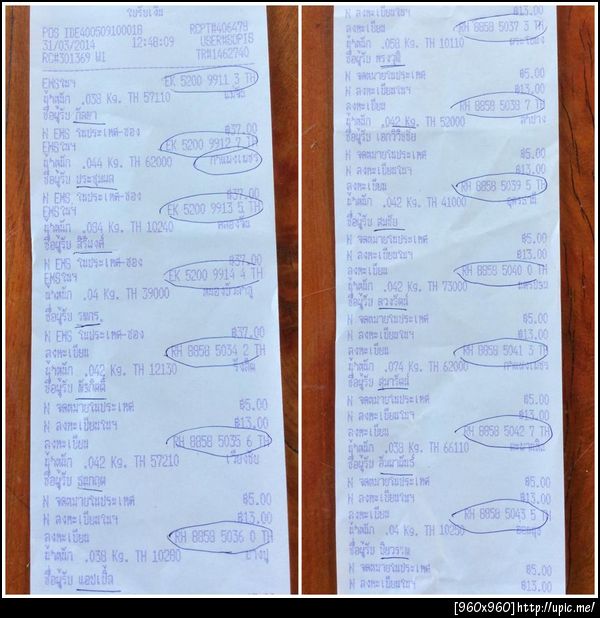 ใบรับเงิน
POS IDE400509100018 RCPT#406479
31/03/2014 12:48:09 USER#SOP18
RC#301369 WI TR#1462740
EMSในฯ EK 5200 9911 3 TH
น้ำหนัก .038 Kg. TH 57110 แม่จัน
ชื่อผู้รับ กัลยา
N EMS ในประเทศ-ซอง ฿37.00
EMSในฯ EK 5200 9912 7 TH
น้ำหนัก .044 Kg. TH 62000 กำแพงเพชร
ชื่อผู้รับ ประชุมผล
N EMS ในประเทศ-ซอง ฿37.00
EMSในฯ EK 5200 9913 5 TH
น้ำหนัก .084 Kg. TH 10240 คลองจั่น
ชื่อผู้รับ สิริมงค์
N EMS ในประเทศ-ซอง ฿37.00
EMSในฯ EK 5200 9914 4 TH
น้ำหนัก .04 Kg. TH 39000 หนองบัวลำภู
ชื่อผู้รับ
N EMS ในประเทศ-ซอง ฿37.00
ลงทะเบียน RH 8858 5034 2 TH
น้ำหนัก .042 Kg. TH 12130 รังสิต
ชื่อผู้รับ
N จดหมายในประเทศ ฿5.00
N ลงทะเบียนในฯ ฿13.00
ลงทะเบียน RH 8858 5035 6 TH
น้ำหนัก .042 Kg. TH 57210 เวียงชัย
ชื่อผู้รับ
N จดหมายในประเทศ ฿5.00
N ลงทะเบียนในฯ ฿13.00
ลงทะเบียน RH 8858 5036 0 TH
น้ำหนัก .038 Kg. TH 10280 บางปู
ชื่อผู้รับ แอปเปิ้ล
N ลงทะเบียนในฯ ฿13.00
ลงทะเบียน RH 8858 5037 3 TH
น้ำหนัก .058 Kg. TH 10110
ชื่อผู้รับ ทรงวุฒิ
N จดหมายในประเทศ ฿5.00
N ลงทะเบียนในฯ ฿13.00
ลงทะเบียน RH 8858 5038 7 TH
น้ำหนัก .042 Kg. TH 52000 ลำปาง
ชื่อผู้รับ เอกวิริชชัย
N จดหมายในประเทศ ฿5.00
N ลงทะเบียนในฯ ฿13.00
ลงทะเบียน RH 8858 5039 5 TH
น้ำหนัก .042 Kg. TH 41000 อุดรธานี
ชื่อผู้รับ สมชัย
N จดหมายในประเทศ ฿5.00
N ลงทะเบียนในฯ ฿13.00
ลงทะเบียน RH 8858 5040 0 TH
น้ำหนัก .042 Kg. TH 73000 นครปฐม
ชื่อผู้รับ ดวงรัตน์
N จดหมายในประเทศ ฿5.00
N ลงทะเบียนในฯ ฿13.00
ลงทะเบียน RH 8858 5041 3 TH
น้ำหนัก .074 Kg. TH 62000 กำแพงเพชร
ชื่อผู้รับ สุมารัตน์
N จดหมายในประเทศ ฿5.00
N ลงทะเบียนในฯ ฿13.00
ลงทะเบียน RH 8858 5042 7 TH
น้ำหนัก .038 Kg. TH 66110 ตะพานหิน
ชื่อผู้รับ
N จดหมายในประเทศ ฿5.00
N ลงทะเบียนในฯ ฿13.00
ลงทะเบียน RH 8858 5043 5 TH
น้ำหนัก .04 Kg. TH 10250
ชื่อผู้รับ ปิยวรรณ
N จดหมายในประเทศ ฿5.00
N ลงทะเบียนในฯ ฿13.00
[960x960] http://upic.me/